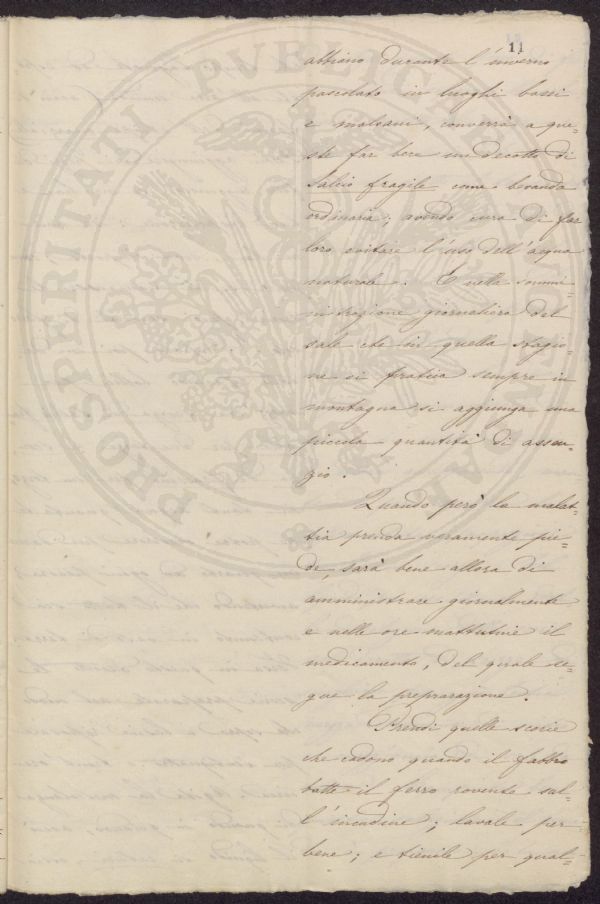 11
abbiano durante l'inverno
pascolato in luoghi bassi
e malsani, converrà a que=
ste far bere un decotto di
Salcio fragile come bevanda
ordinaria; avendo cura di far
loro evitare l'uso dell'acqua
naturale. E nella sommi=
nistrazione giornaliera del
sale che in quella stagio=
ne si pratica sempre in
montagna si aggiunga una
piccola quantità di assen=
zio.
Quando però la malat=
tia prenda veramente pie=
de, sarà bene allora di
amministrare giornalmente
e nelle ore mattutine il
medicamento, del quale se=
gue la preparazione.
Prendi quelle scorie
che cadono quando il fabbro
batte il ferro rovente sul=
l'incudine; lavale per=
bene; e tienile per qual=
PROSPERITATI PVBLICAE AVGENDAE